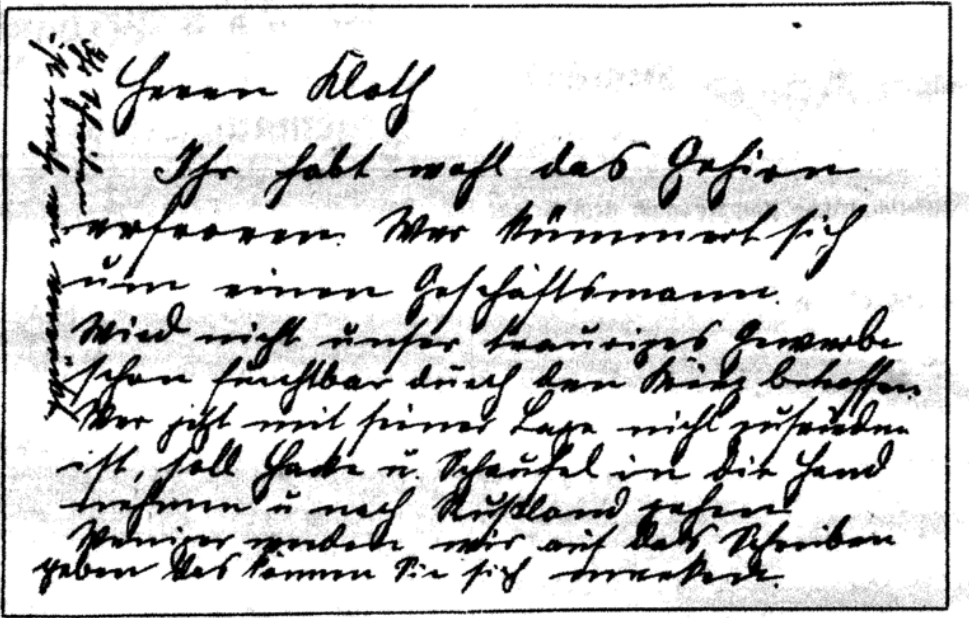 Herrn Kloth
Ihr habt wohl das Gehirn
erfroren. Wer kümmert sich
um einen Geschäftsmann.
Wird nicht unser trauriges Gewerbe
schon furchtbar durch den Krieg betroffen.
Wer jetzt mit seiner Lage nicht zufrieden
ist, soll Hacke u. Schaufel in die Hand
nehmen u nach Rußland gehen
Weniger werden wir auf das Schreiben
geben das können Sie sich merken.